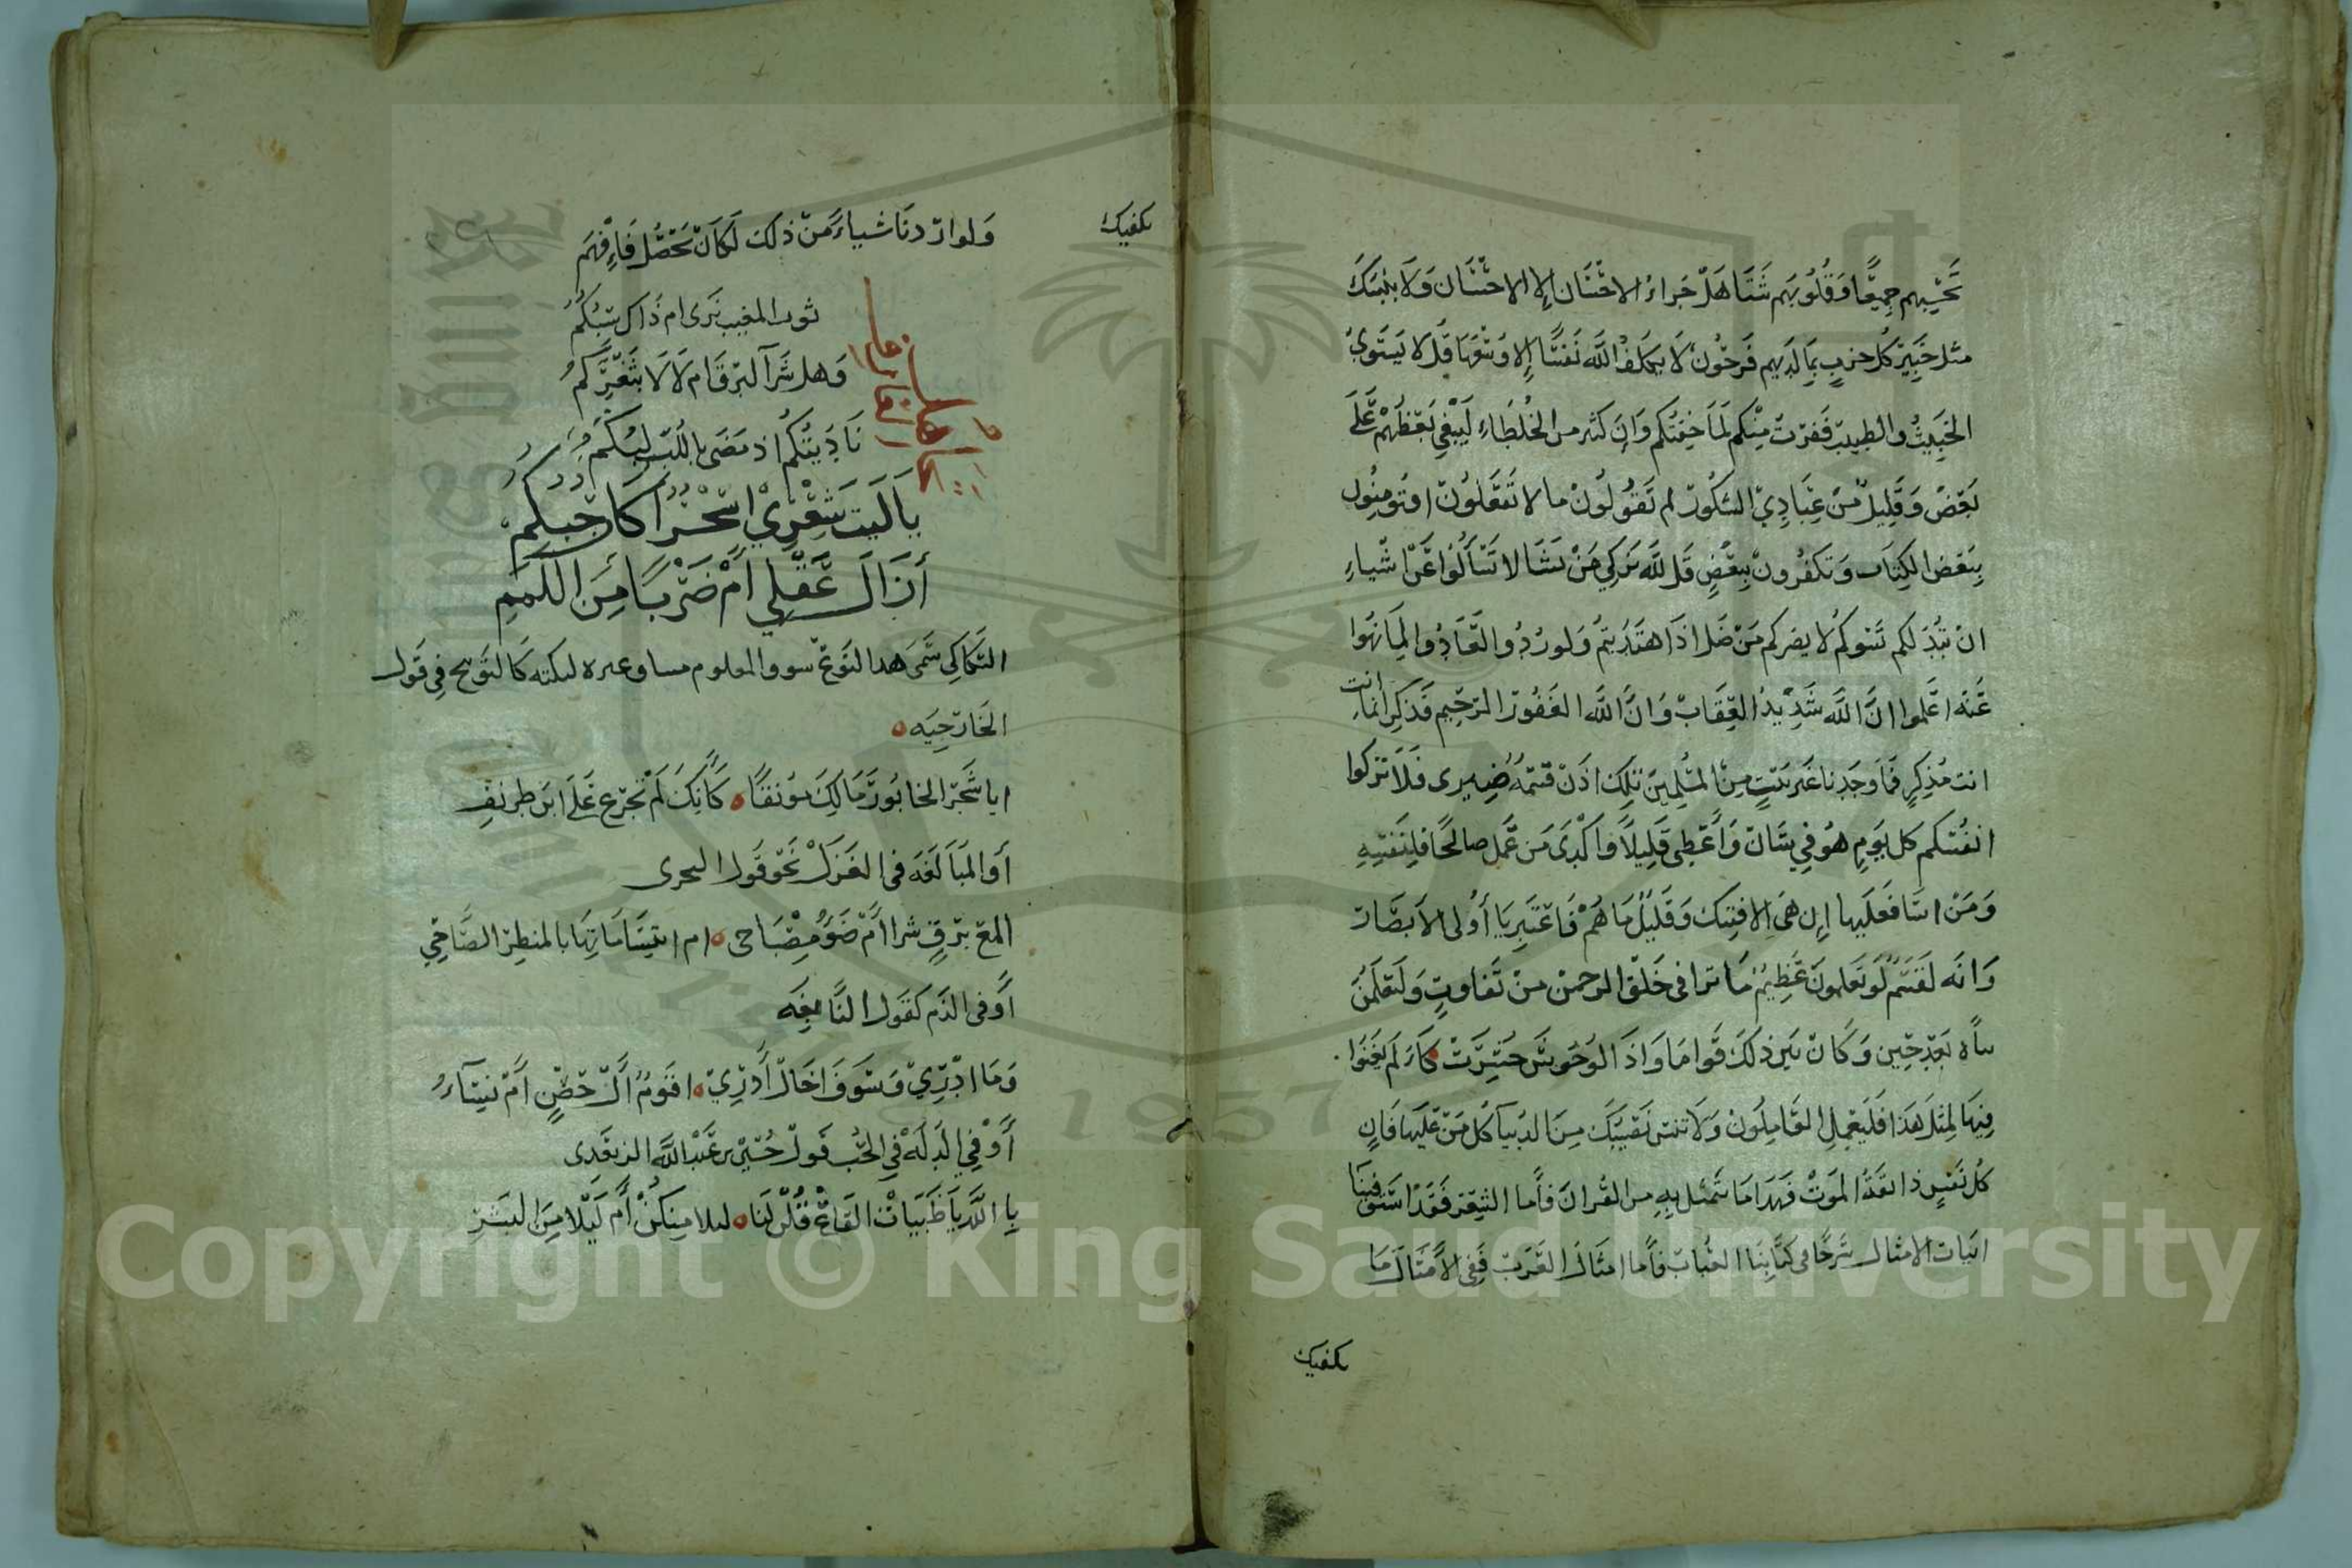 تحسبهم جميعا وقلوبهم شتا هل جزاء الاحسان إلا الاحسان ولا ينبئك
مثل خبير كل حزب بما لديهم فرحون لا يكلف الله نفسا إلا وسعها قل لا يستوي
الخبيث والطيب ففرت منكم لما خفتكم وان كثير من الخلطاء ليبغي بعضهم على
بعض وقليل من عبادي الشكور لم تقولون ما لا تفعلون افتومنون
ببعض الكتاب وتكفرون ببعض قل لله يزكي من يشا لا تسألوا عن اشياء
ان تبد لكم تسوكم لا يضركم من ضل اذا اهتديتم ولو ردوا لعادوا لما نهوا
عنه اعلموا ان الله شديد العقاب وان الله الغفور الرحيم فذكر انما انت
انت مذكر فما وجدنا غير بيت من المسلمين تلك اذن قسمة ضيرى فلا تزكوا
انفسكم كل يوم هو في شان وأعطى قليلا وأكدى من عمل صالحا فلنفسه
ومن اسا فعليها إن هي الا فتنتك وقليل ما هم فاعتبر يا أولى الأبصار
وانه لقسم لو تعلمون عظيم ما ترا في خلق الرحمن من تفاوت ولتعلمن
نباه بعد حين وكان بين ذلك قواما واذا الوحوش حشرت كان لم يغنوا
فيها لمثل هذا فليعمل العاملون ولا تنس نصيبك من الدنيا كل من عليها فان
كل نفس ذائقة الموت فهدا ما تمثل به من القران فأما الشعر فقد استوفينا
ابيات الامثال شرحا في كتابنا العباب فأما امثال العرب ففي الأمثال ما
يكفيك
يكفيك
ولو اردنا شياء من ذلك لكان يحصل فافهم
ثور المغيب نرى ام ذاك
وهل شرا البرق ام لا لا بثغركم
ناديتكم اذ مضى باللب
يا ليت شعري اسحرا كان حبكم
أزال عقلي أم ضربا من اللمم
السكاكي سمى هدا النوع سوق المعلوم مساق غيره لنكته كالتوبيح في قول
الخارجيه
ايا شجر الخابور مالك مونقا كانك لم تجزع على ابن طريف
أو المبالغه في الغزل نحو قول البحترى
المع برق سرا أم ضوء مصباحى ام ابتسامتها بالمنظر الضاحي
أو في الذم كقول النابغه
وما ادري وسوف اخال أدري اقوم ال حصن أم نساء
أو في الدله في الحب قول حسين بن عبد الله الغزي
با الله يا ظبيات القاع قلن لنا ليلا منكن أم ليلا من البشر